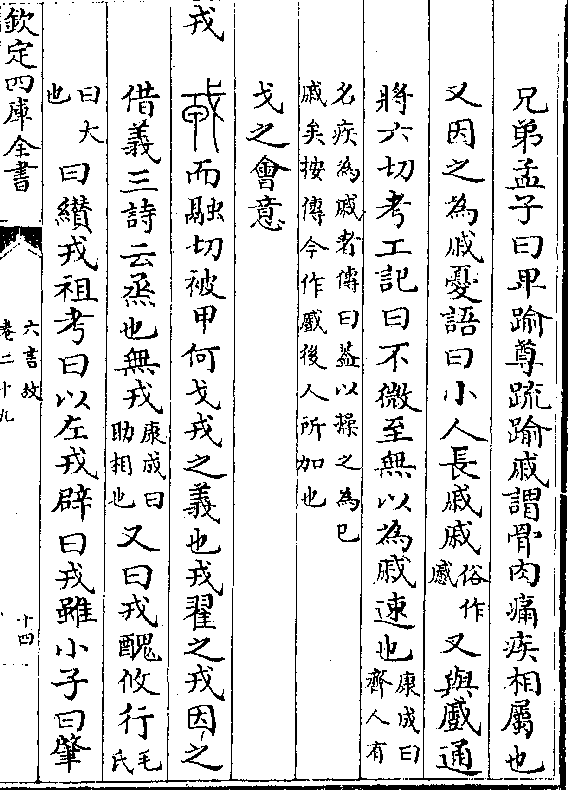 兄弟孟子曰卑踰尊䟽踰戚謂骨肉痛疾相屬也
又因之為戚憂語曰小人長戚戚俗作慼又與蹙通
將六切考工記曰不微至無以為戚速也康成曰齊人有
名疾為戚者傳曰蓋以操之為已
戚矣按傳今作蹙後人所加也
戈之會意
戎
而融切被甲何戈戎之義也戎翟之戎因之
借義三詩云烝也無戎康成曰助相也又曰戎醜攸行毛氏
曰大也曰纘戎祖考曰以左戎辟曰戎雖小子曰肇
欽定四庫全書
六書故
卷二十九
十四